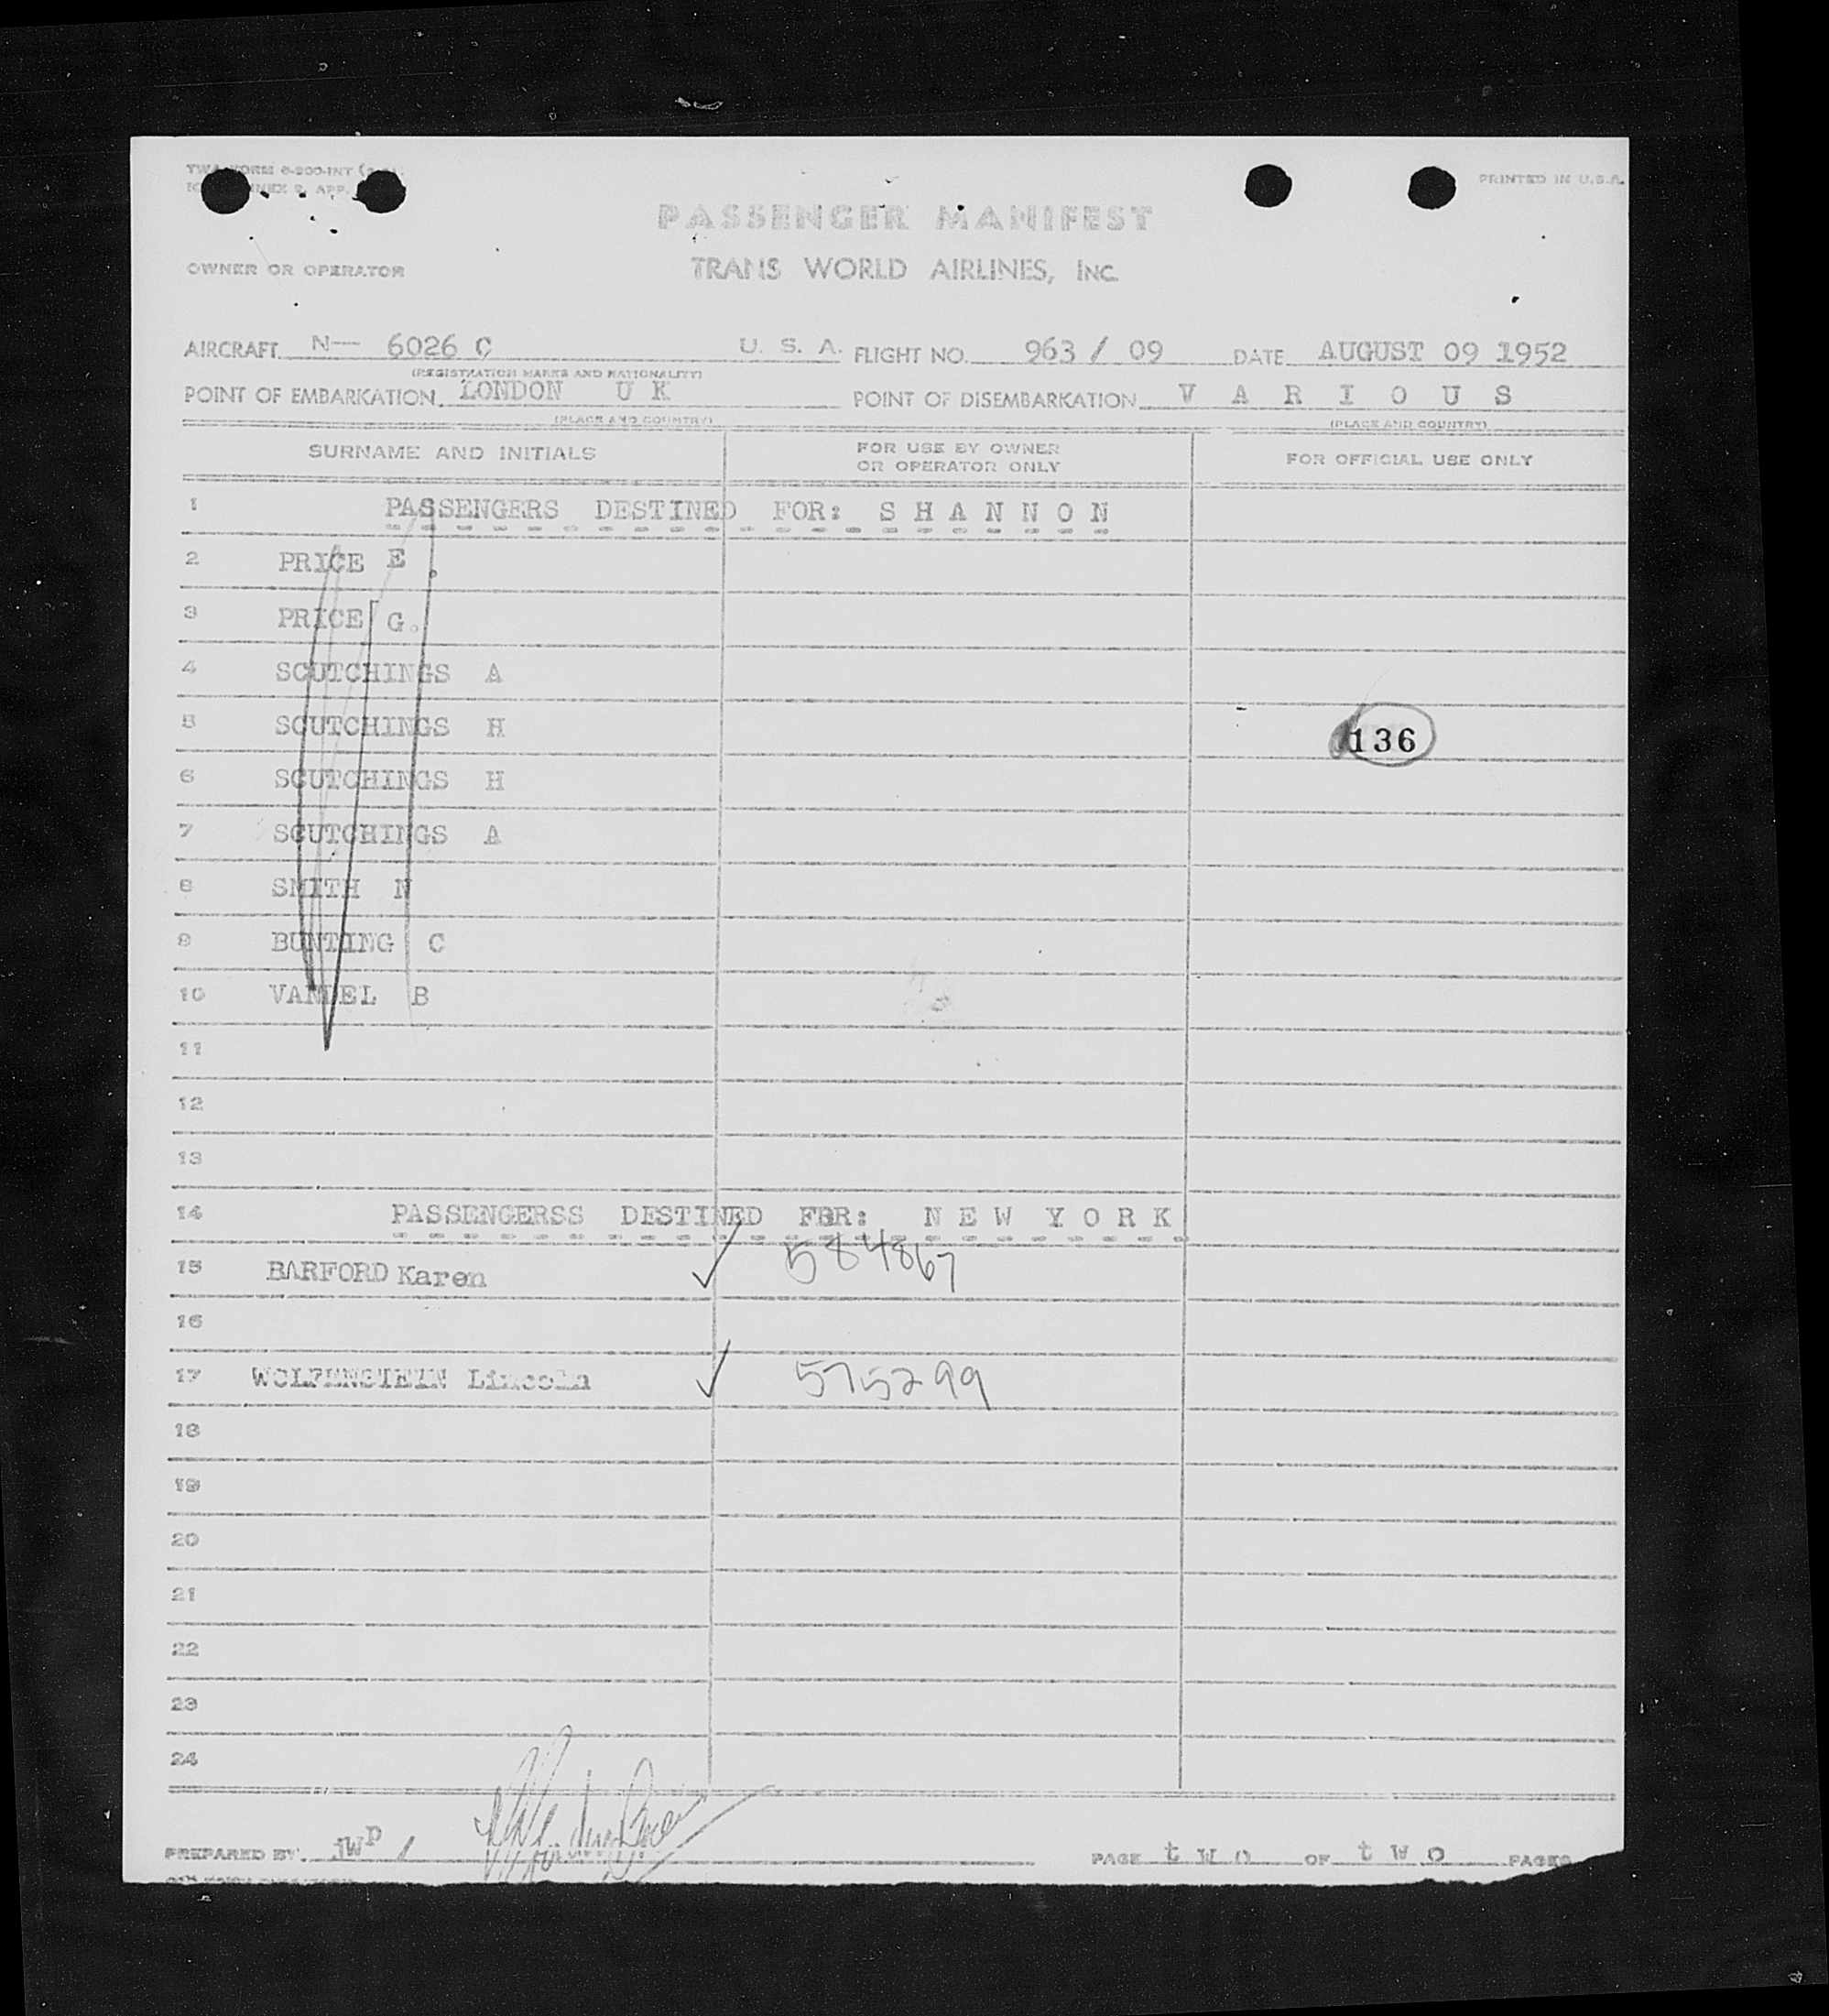 TWA FORM 6-900-INT
ANNEX 9, APP.
PRINTED IN U.S.A.
PASSENGER MANIFEST
OWNER OR OPERATOR TRANS WORLD AIRLINES, INC.
AIRCRAFT N— 6026 C U. S. A. FLIGHT NO. 963 / 09 DATE AUGUST 09 1952
(REGISTRATION MARKS AND NATIONALITY)
POINT OF EMBARKATION LONDON U K POINT OF DISEMBARKATION V A R I O U S
(PLACE AND COUNTRY) (PLACE AND COUNTRY)
SURNAME AND INITIALS FOR USE BY OWNER OR OPERATOR ONLY FOR OFFICIAL USE ONLY
1 PASSENGERS DESTINED FOR: S H A N N O N
2 PRICE E.
3 PRICE G.
4 SCUTCHINGS A
5 SCUTCHINGS H
136
6 SCUTCHINGS H
7 SCUTCHINGS A
8 SMITH N
9 BUNTING C
10 VANDEL B
11
12
13
14 PASSENGERSS DESTINED FOR: N E W Y O R K
15 BARFORD Karen ✓ 584867
16
17 WOLFENSTEIN Lincoln ✓ 575299
18
19
20
21
22
23
24
PREPARED BY JWP / PAGE t w o OF t w o PAGES